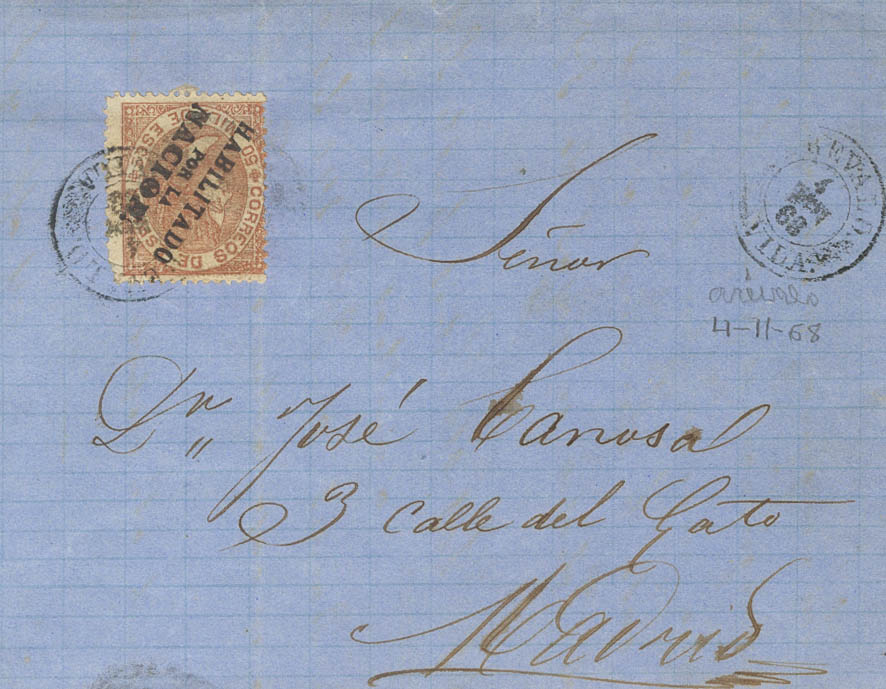 HABILITADO
POR LA
NACION.
CORREOS DE
Señor
4
68
arévalo
4-11-68
Dn José Canosa
3 calle del Gato
Madrid